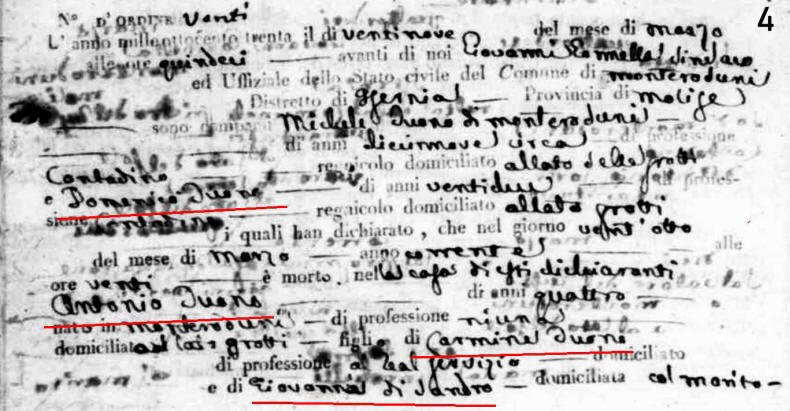 4
N.° D'ORDINE venti
L'anno mille ottocento trenta il di ventinove del mese di marzo
alle ore quindeci avanti di noi Giovanni Sindaco
ed Uffiziale dello Stato civile del Comune di monteroduni
Distretto di Isernia Provincia di molise
sono comparsi Michele Duono di monteroduni
di anni diciennove circa di professione
Contadino regnicolo domiciliato allato delle grotti
e Domenico Duono di anni ventidue di profes-
sione Contadino regnicolo domiciliato allato grotti
i quali han dichiarato, che nel giorno vent'otto
del mese di marzo anno corrente alle
ore venti è morto nella casa di essi dichiaranti
Antonio Duono di anni quattro
nato in monteroduni di professione niuna
domiciliato grotti figlio di Carmine Duono
di professione al Real servizio domiciliato
e di Giovanna di Sandro domiciliata col marito